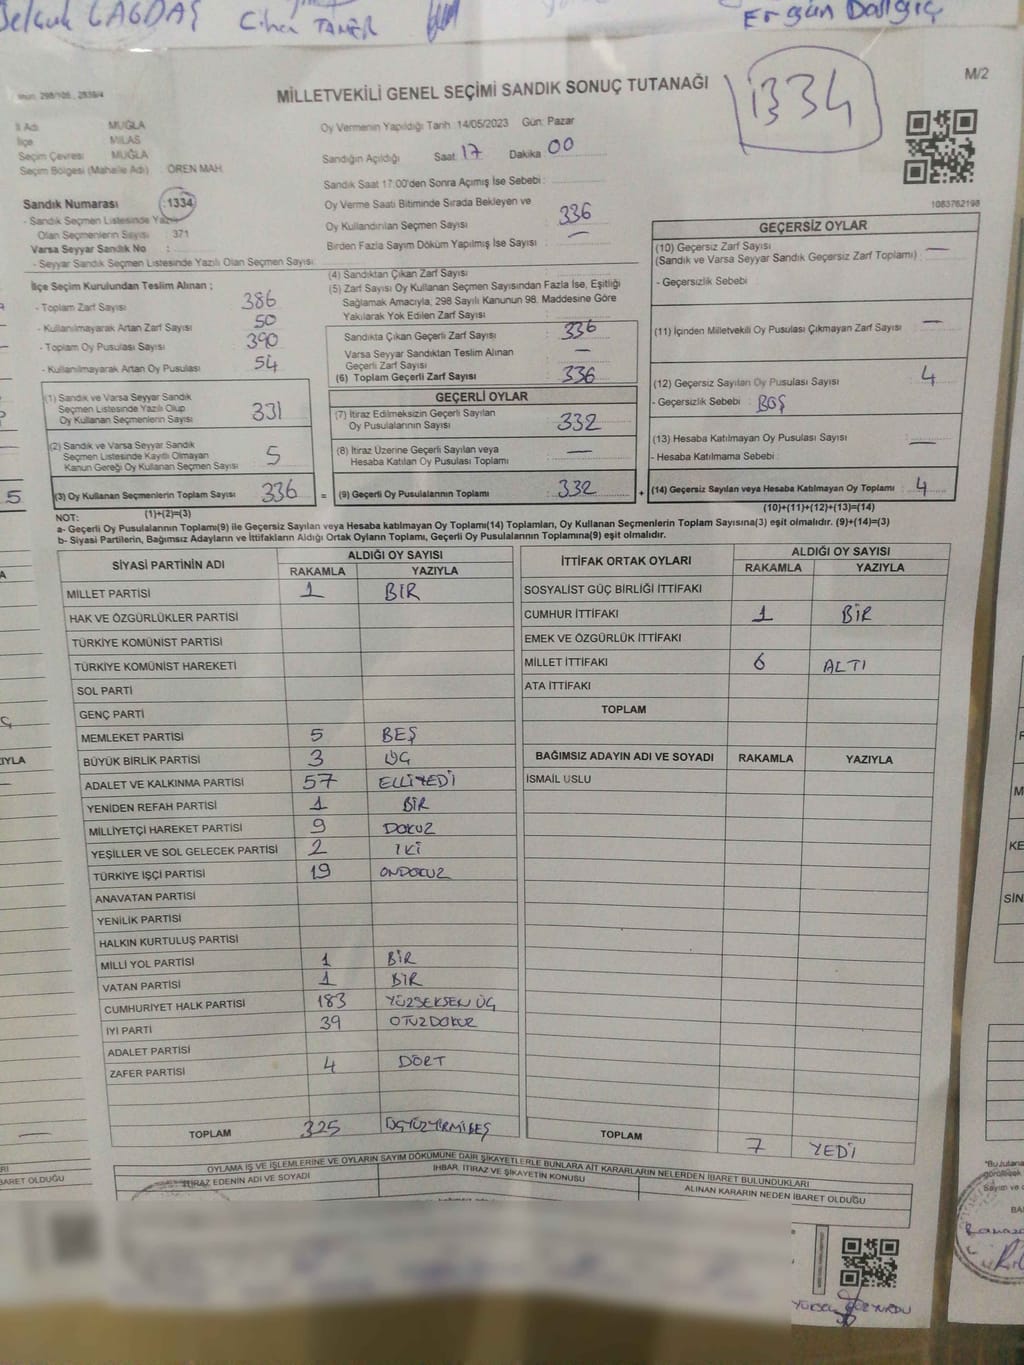 Selçuk ÇAĞDAŞ Cihan TANER Ergün Dalgıç
1334
M/2
MİLLETVEKİLİ GENEL SEÇİMİ SANDIK SONUÇ TUTANAĞI
İl Adı MUĞLA
İlçe MİLAS
Seçim Çevresi MUĞLA
Seçim Bölgesi (Mahalle Adı) : ÖREN MAH.
Sandık Numarası :1334
- Sandık Seçmen Listesinde Yazılı
Olan Seçmenlerin Sayısı : 371
Varsa Seyyar Sandık No :
- Seyyar Sandık Seçmen Listesinde Yazılı Olan Seçmen Sayısı :
Oy Vermenin Yapıldığı Tarih: 14/05/2023 Gün: Pazar
Sandığın Açıldığı Saat 17 Dakika 00
Sandık Saat 17:00'den Sonra Açılmış İse Sebebi :
Oy Verme Saati Bitiminde Sırada Bekleyen ve
Oy Kullandırılan Seçmen Sayısı 336
Birden Fazla Sayım Döküm Yapılmış İse Sayısı : —
1083762198
İlçe Seçim Kurulundan Teslim Alınan ;
- Toplam Zarf Sayısı 386
- Kullanılmayarak Artan Zarf Sayısı 50
- Toplam Oy Pusulası Sayısı 390
- Kullanılmayarak Artan Oy Pusulası 54
(1) Sandık ve Varsa Seyyar Sandık
Seçmen Listesinde Yazılı Olup
Oy Kullanan Seçmenlerin Sayısı 331
(2) Sandık ve Varsa Seyyar Sandık
Seçmen Listesinde Kayıtlı Olmayan
Kanun Gereği Oy Kullanan Seçmen Sayısı 5
(3) Oy Kullanan Seçmenlerin Toplam Sayısı 336 =
(1)+(2)=(3)
(4) Sandıktan Çıkan Zarf Sayısı
(5) Zarf Sayısı Oy Kullanan Seçmen Sayısından Fazla İse, Eşitliği
Sağlamak Amacıyla, 298 Sayılı Kanunun 98. Maddesine Göre
Yakılarak Yok Edilen Zarf Sayısı :
Sandıkta Çıkan Geçerli Zarf Sayısı : 336
Varsa Seyyar Sandıktan Teslim Alınan
Geçerli Zarf Sayısı : —
(6) Toplam Geçerli Zarf Sayısı : 336
GEÇERLİ OYLAR
(7) İtiraz Edilmeksizin Geçerli Sayılan
Oy Pusulalarının Sayısı : 332
(8) İtiraz Üzerine Geçerli Sayılan veya
Hesaba Katılan Oy Pusulası Toplamı : —
(9) Geçerli Oy Pusulalarının Toplamı : 332 +
GEÇERSİZ OYLAR
(10) Geçersiz Zarf Sayısı
(Sandık ve Varsa Seyyar Sandık Geçersiz Zarf Toplamı) : —
- Geçersizlik Sebebi
(11) İçinden Milletvekili Oy Pusulası Çıkmayan Zarf Sayısı : —
(12) Geçersiz Sayılan Oy Pusulası Sayısı : 4
- Geçersizlik Sebebi : BOŞ
(13) Hesaba Katılmayan Oy Pusulası Sayısı : —
- Hesaba Katılmama Sebebi :
(14) Geçersiz Sayılan veya Hesaba Katılmayan Oy Toplamı : 4
(10)+(11)+(12)+(13)=(14)
NOT:
a- Geçerli Oy Pusulalarının Toplamı(9) ile Geçersiz Sayılan veya Hesaba katılmayan Oy Toplamı(14) Toplamları, Oy Kullanan Seçmenlerin Toplam Sayısına(3) eşit olmalıdır. (9)+(14)=(3)
b- Siyasi Partilerin, Bağımsız Adayların ve İttifakların Aldığı Ortak Oyların Toplamı, Geçerli Oy Pusulalarının Toplamına(9) eşit olmalıdır.
SİYASİ PARTİNİN ADI ALDIĞI OY SAYISI
RAKAMLA YAZIYLA
MİLLET PARTİSİ 1 BİR
HAK VE ÖZGÜRLÜKLER PARTİSİ
TÜRKİYE KOMÜNİST PARTİSİ
TÜRKİYE KOMÜNİST HAREKETİ
SOL PARTİ
GENÇ PARTİ
MEMLEKET PARTİSİ 5 BEŞ
BÜYÜK BİRLİK PARTİSİ 3 ÜÇ
ADALET VE KALKINMA PARTİSİ 57 ELLİYEDİ
YENİDEN REFAH PARTİSİ 1 BİR
MİLLİYETÇİ HAREKET PARTİSİ 9 DOKUZ
YEŞİLLER VE SOL GELECEK PARTİSİ 2 İKİ
TÜRKİYE İŞÇİ PARTİSİ 19 ONDOKUZ
ANAVATAN PARTİSİ
YENİLİK PARTİSİ
HALKIN KURTULUŞ PARTİSİ
MİLLİ YOL PARTİSİ 1 BİR
VATAN PARTİSİ 1 BİR
CUMHURİYET HALK PARTİSİ 183 YÜZSEKSEN ÜÇ
İYİ PARTİ 39 OTUZDOKUZ
ADALET PARTİSİ
ZAFER PARTİSİ 4 DÖRT
TOPLAM 325 ÜÇYÜZYİRMİBEŞ
İTTİFAK ORTAK OYLARI ALDIĞI OY SAYISI
RAKAMLA YAZIYLA
SOSYALİST GÜÇ BİRLİĞİ İTTİFAKI
CUMHUR İTTİFAKI 1 BİR
EMEK VE ÖZGÜRLÜK İTTİFAKI
MİLLET İTTİFAKI 6 ALTI
ATA İTTİFAKI
TOPLAM
BAĞIMSIZ ADAYIN ADI VE SOYADI RAKAMLA YAZIYLA
İSMAİL USLU
TOPLAM 7 YEDİ
OYLAMA İŞ VE İŞLEMLERİNE VE OYLARIN SAYIM DÖKÜMÜNE DAİR ŞİKAYETLERLE BUNLARA AİT KARARLARIN NELERDEN İBARET BULUNDUKLARI
İTİRAZ EDENİN ADI VE SOYADI İHBAR, İTİRAZ VE ŞİKAYETİN KONUSU ALINAN KARARIN NEDEN İBARET OLDUĞU